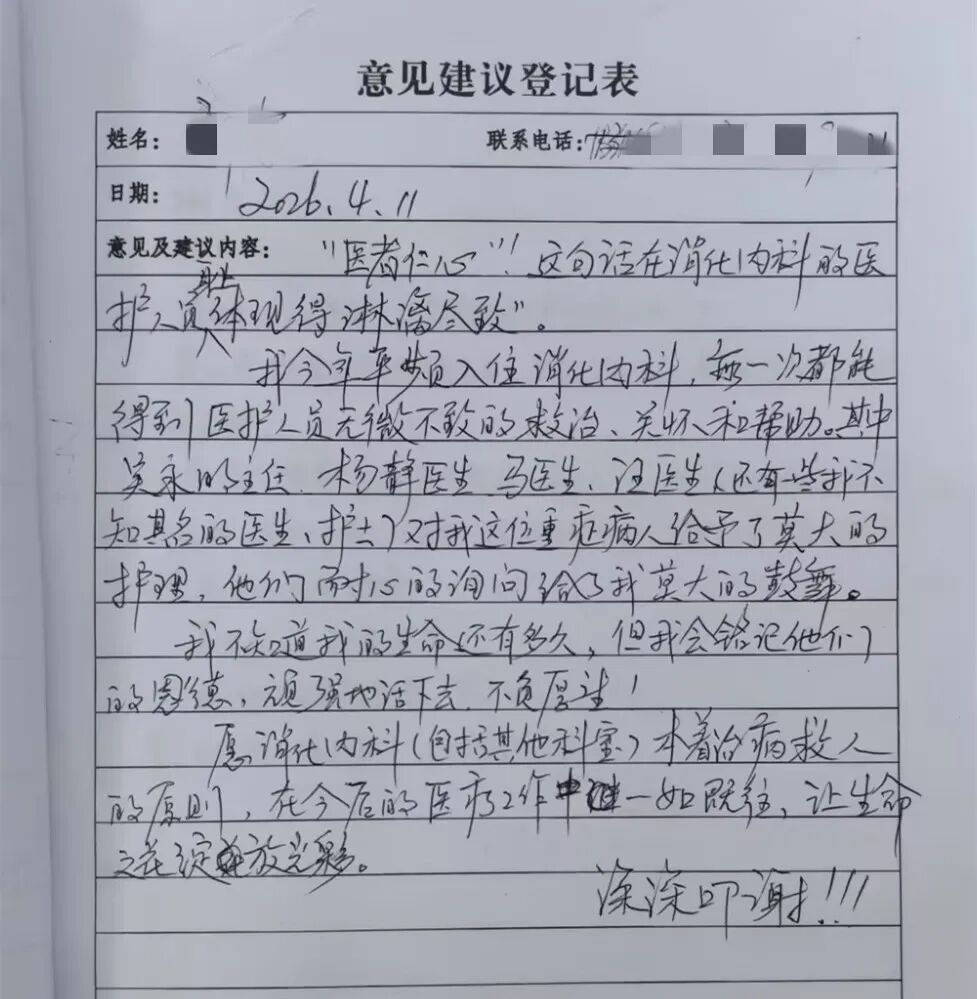 意见建议登记表
姓名:
联系电话:
日期: 2026.4.11
意见及建议内容: "医者仁心"!这句话在消化内科的医
护人员身上体现得淋漓尽致"。
我今年频入住消化内科,每一次都能
得到医护人员无微不致的救治、关怀和帮助。其中
吴永明主任、杨静医生、马医生、汪医生(还有一些我不
知其名的医生、护士)对我这位重症病人给予了莫大的
护理,他们耐心的询问给了我莫大的鼓舞。
我不知道我的生命还有多久,但我会铭记他们
的恩德,顽强地活下去,不负厚望!
愿消化内科(包括其他科室)本着治病救人
的原则,在今后的医疗工作中继一如既往,让生命
之花绽放光彩。
深深叩谢!!!